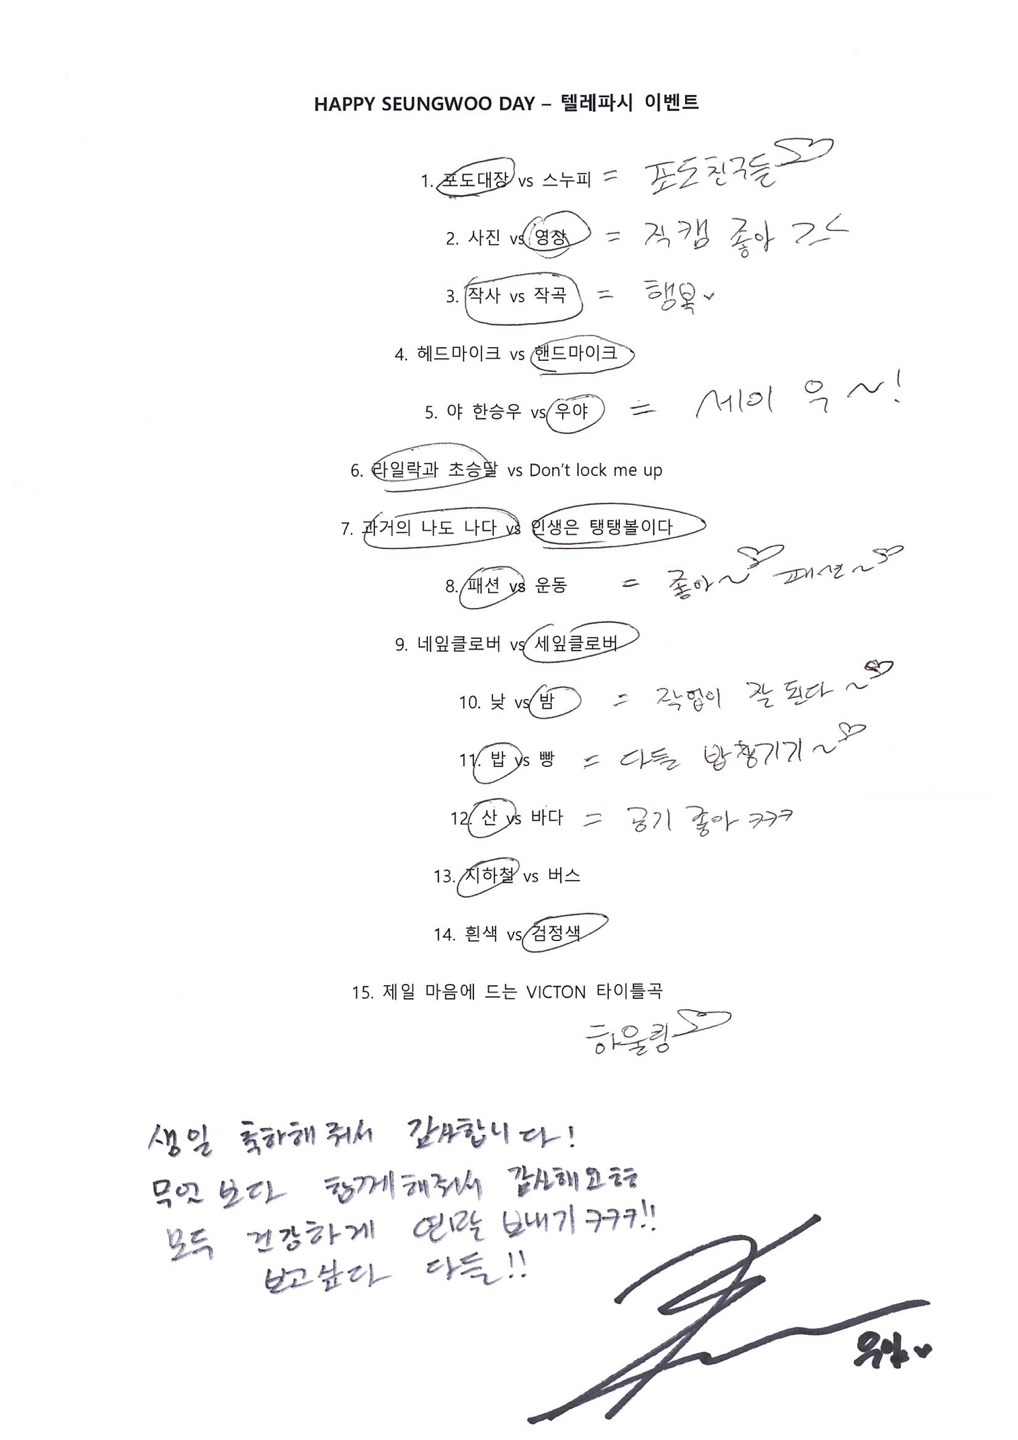 HAPPY SEUNGWOO DAY – 텔레파시 이벤트
1. 포도대장 vs 스누피 = 포도친구들
2. 사진 vs 영상 = 직캠 좋아 ㄱㅅ
3. 작사 vs 작곡 = 행복
4. 헤드마이크 vs 핸드마이크
5. 야 한승우 vs 우야 = 세이 우 ~!
6. 라일락과 초승달 vs Don't lock me up
7. 과거의 나도 나다 vs 인생은 탱탱볼이다
8. 패션 vs 운동 = 좋아~ 패션~
9. 네잎클로버 vs 세잎클로버
10. 낮 vs 밤 = 작업이 잘 된다 ~
11. 밥 vs 빵 = 다들 밥 챙기기 ~
12. 산 vs 바다 = 공기 좋아 ㅋㅋㅋ
13. 지하철 vs 버스
14. 흰색 vs 검정색
15. 제일 마음에 드는 VICTON 타이틀곡
하울링
생일 축하해 줘서 감사합니다!
무엇 보다 함께해줘서 감사해요ㅎ
모두 건강하게 연말 보내기 ㅋㅋㅋ!!
보고싶다 다들!!
우야